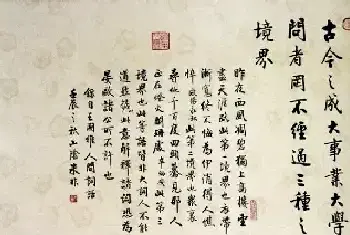 古今之成大事業大學
問者罔不經過三種之
境界
昨夜西風凋碧樹獨上高樓望
盡天涯路此第一境界也衣帶
漸寬終不悔為伊消得人憔
悴此第二境界也衆裏
尋他千百度回頭驀見那人
正在燈火闌珊處此第三
境界也此等語皆非大詞人不能
道然遽以此意解釋諸詞恐為
晏歐諸公所不許也
錄自王國維人間詞話
壬辰之秋山陰東非